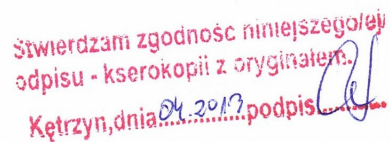 Stwierdzam zgodność niniejszego/ej
odpisu - kserokopii z oryginałem.
Kętrzyn,dnia 04.2013 podpis